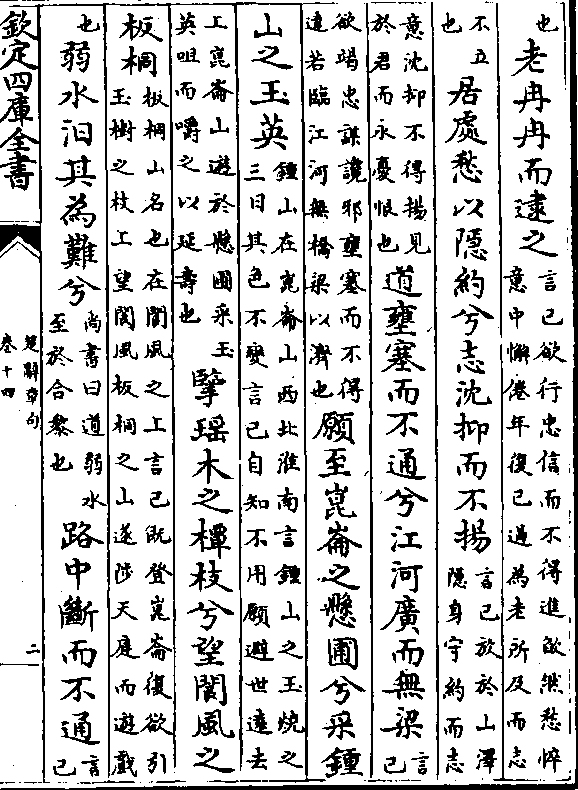 也老冉冉而逮之言己欲行忠信而不得進歘然愁悴意中懈倦年復已過為老所及而志
不立也居處愁以隱約兮志沈抑而不揚言己放於山澤隱身守約而志
意沈抑不得揚見於君而永憂恨也道壅塞而不通兮江河廣而無梁言己
欲竭忠謀讒邪壅塞而不得達若臨江河無橋梁以濟也願至崑崙之懸圃兮采鍾
山之玉英鍾山在崑崙山西北淮南言鍾山之玉燒之三日其色不變言己自知不用願避世遠去
上崑崙山遊於懸圃采玉英咀而嚼之以延壽也擥瑶木之橝枝兮望閬風之
板桐板桐山名也在閬風之上言己既登崑崙復欲引玉樹之枝上望閬風板桐之山遂陟天庭而遊戲
也弱水汨其為難兮尚書曰道弱水至於合黎也路中斷而不通言己
欽定四庫全書
楚辭章句
卷十四
二